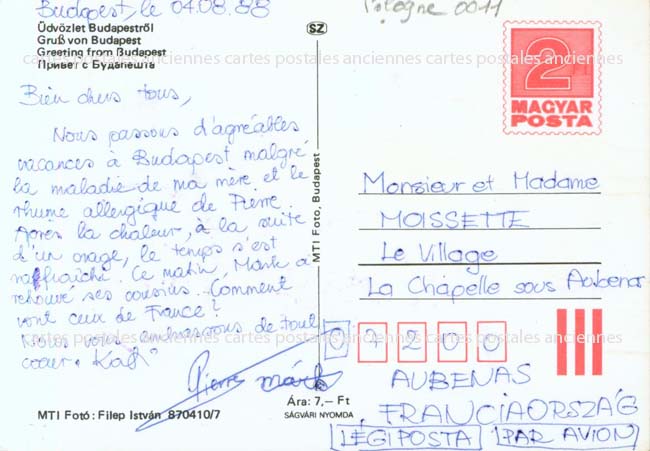 Budapest, le 04.08.88
Pologne 0011
Üdvözlet Budapestről
Gruß von Budapest
Greeting from Budapest
Привет с Будапешта
SZ
2
MAGYAR
POSTA
cartes postales anciennes cartes postales anciennes cartes postales anciennes
Bien chers tous,
Nous passons d'agréables
vacances à Budapest malgré
la maladie de ma mère et le
rhume allergique de Pierre.
Après la chaleur, à la suite
d'un orage, le temps s'est
raffraîchi. Ce matin, Márk a
retrouvé ses cousins. Comment
vont ceux de France?
Nous vous embrassons de tout
coeur. Kati
Pierre márk
MTI Foto, Budapest
Monsieur et Madame
MOISSETTE
Le Village
La Chapelle sous Aubenas
cartes postales anciennes cartes postales anciennes cartes postales anciennes
07200
AUBENAS
FRANCIAORSZÁG
LÉGIPOSTA PAR AVION
MTI Fotó: Filep István 870410/7
Ára: 7,– Ft
SÁGVÁRI NYOMDA